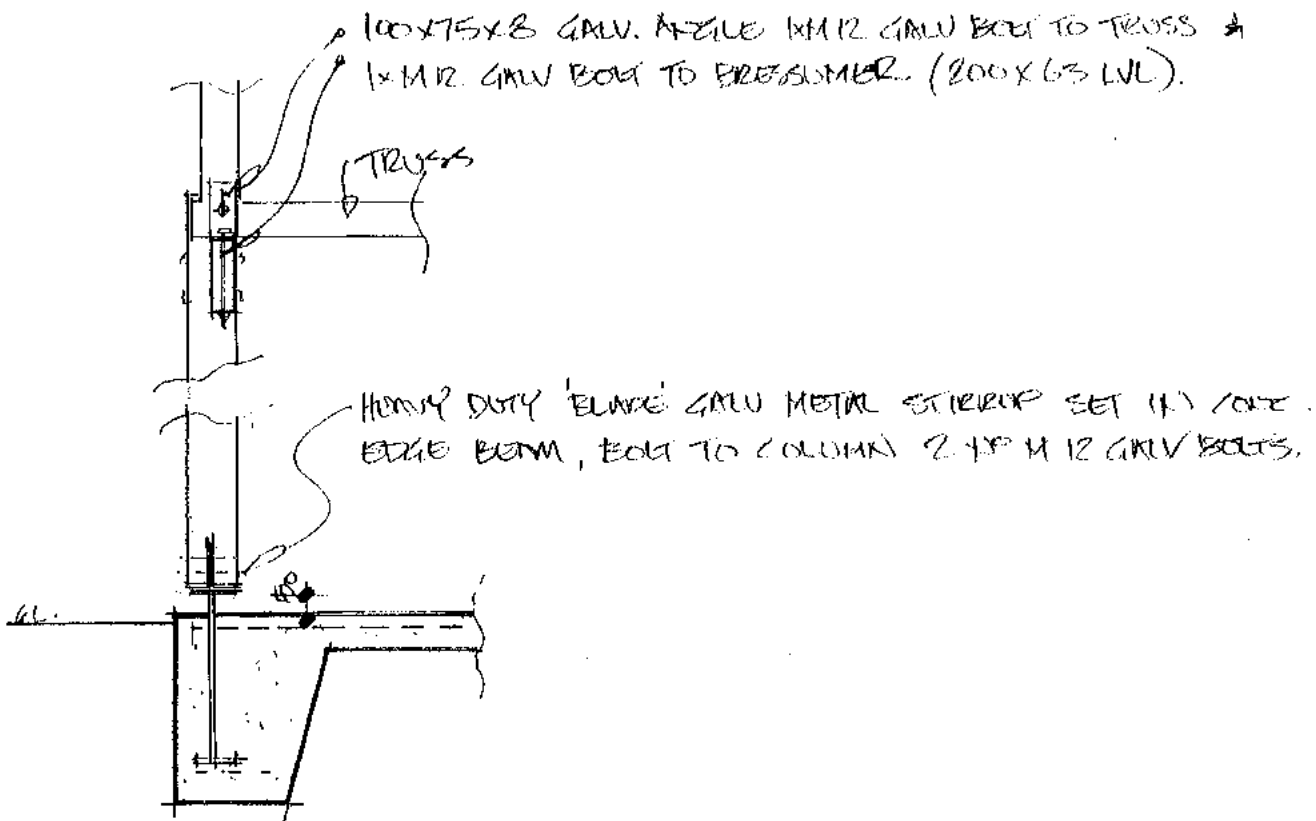 100x75x8 GALV. ANGLE 1xM12 GALV BOLT TO TRUSS &
1xM12 GALV BOLT TO BRESSUMER. (200x63 LVL).
TRUSS
HEAVY DUTY 'BLADE' GALV METAL STIRRUP SET IN CONC.
EDGE BEAM, BOLT TO COLUMN 2 M12 GALV BOLTS.
GL.